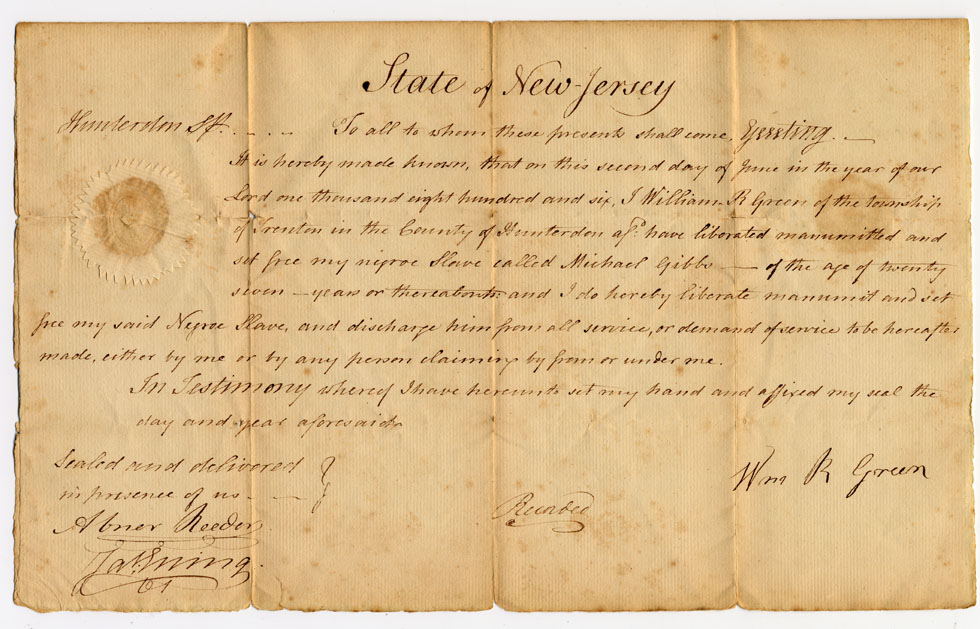 State of New-Jersey
Hunterdon Ss. . _ . _ To all to whom these presents shall come, Greeting. _
It is hereby made known, that on this second day of June in the year of our
Lord one thousand eight hundred and six, I William R Green of the township
of Trenton in the County of Hunterdon afd. have liberated manumitted and
set free my negroe Slave called Michael Gibbs — of the age of twenty
seven — years or thereabouts and I do hereby liberate manumit and set
free my said Negroe Slave, and discharge him from all service, or demand of service to be hereafter
made, either by me or by any person claiming by from or under me.
In Testimony whereof I have hereunto set my hand and affixed my seal the
day and year aforesaid
Sealed and delivered
in presence of us _ _
Wm R Green
Recorded
Abner Reeder
Jas. Ewing